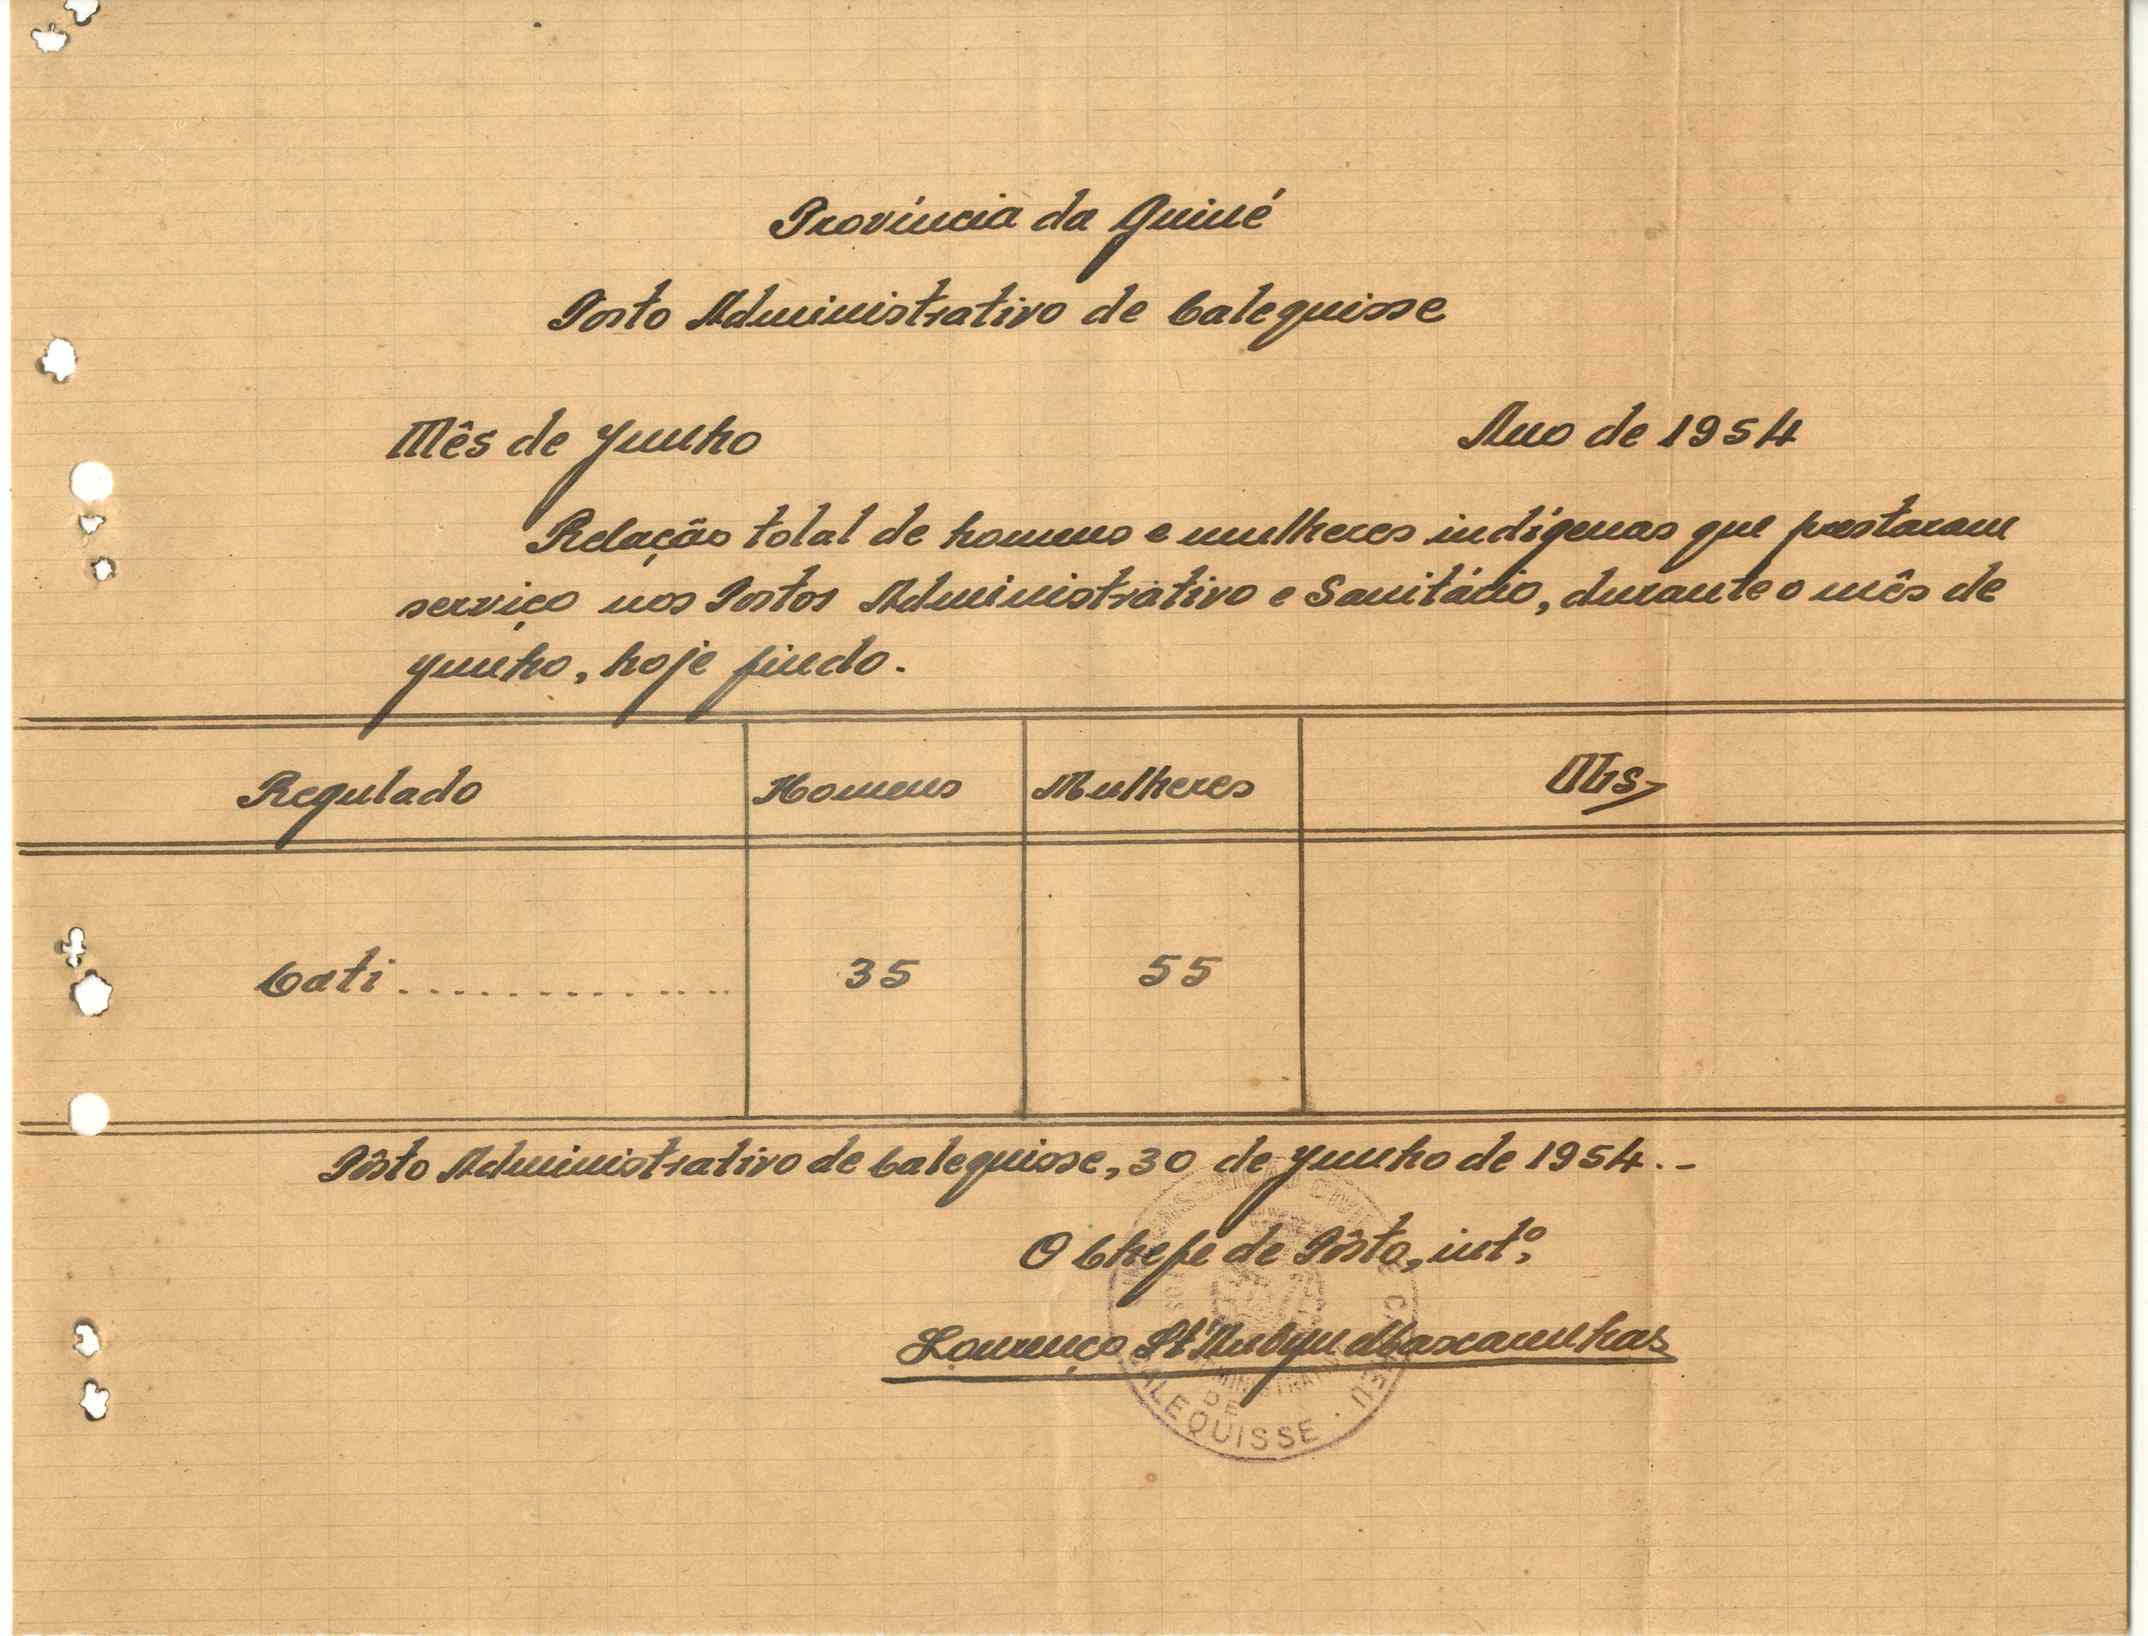 Província da Guiné
Posto Administrativo de Calequisse
Mês de Junho Ano de 1954
Relação total de homens e mulheres indígenas que prestaram
serviço nos Postos Administrativo e Sanitário, durante o mês de
Junho, hoje findo.
Regulado Homens Mulheres Obs,
Cati .............. 35 55
Pôsto Administrativo de Calequisse, 30 de Junho de 1954.-
O Chefe de Pôsto, intº,
Lourenço Mascarenhas
DE
CALEQUISSE